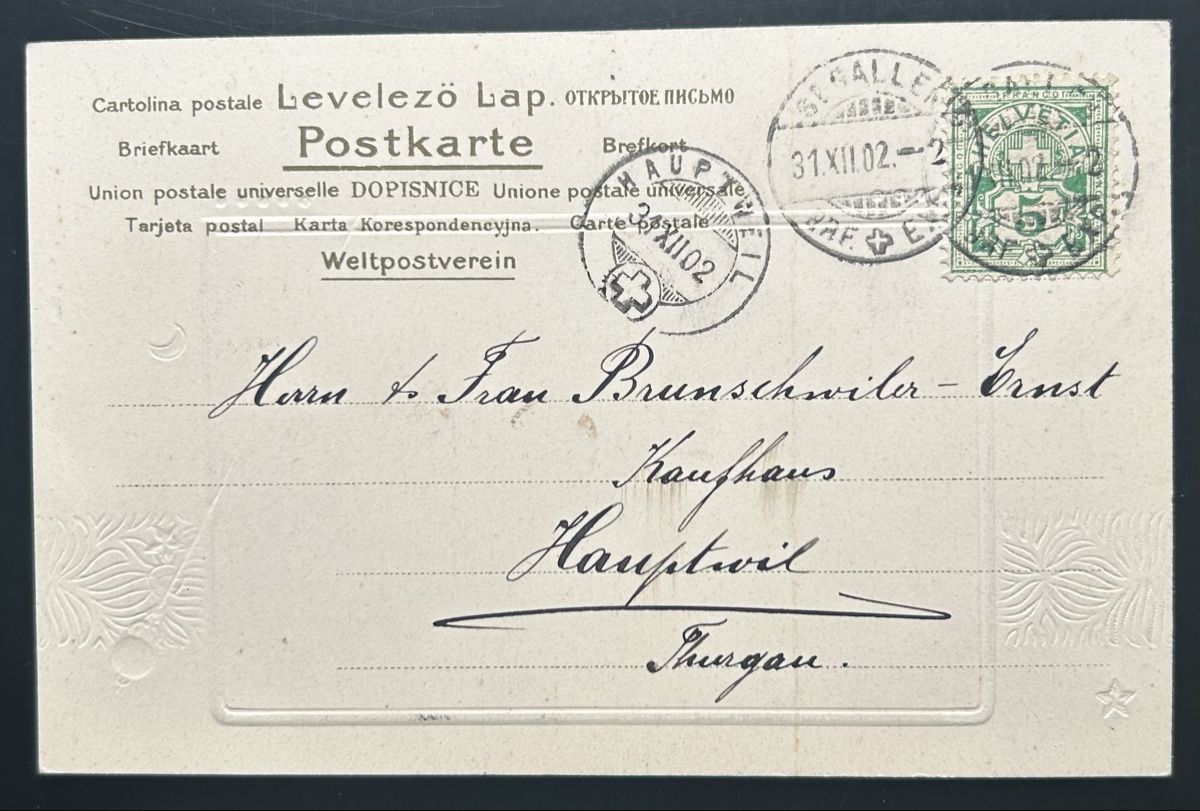 Cartolina postale Levelező Lap. ОТКРЫТОЕ ПИСЬМО
Briefkaart Postkarte Brefkort
Union postale universelle DOPISNICE Unione postale universale
Tarjeta postal Karta Korespondencyjna. Carte postale
Weltpostverein
HAUPTWEIL
31 XII 02
ST. GALLEN
31.XII.02.-2
BRF. EXP.
FRANCO
HELVETIA
5
Herrn & Frau Brunschwiler-Ernst
Kaufhaus
Hauptwil
Thurgau.